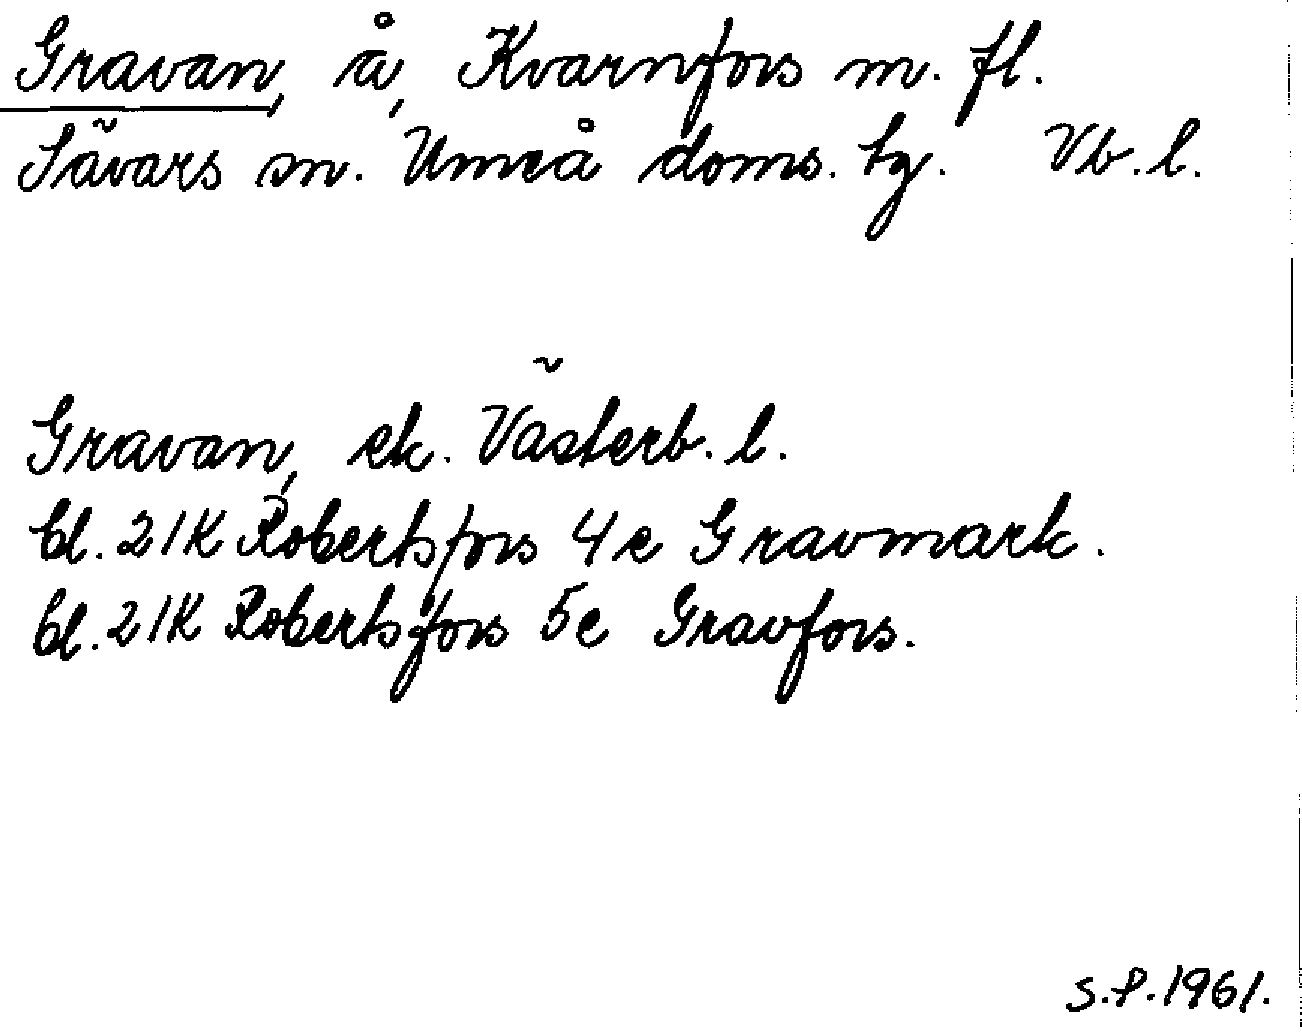 Gravan, å, Kvarnfors m. fl.
Sävars sn. Umeå doms. tg. Vb. l.
Gravan, ek. Västerb. l.
bl. 21K Robertsfors 4c Gravmark.
bl. 21K Robertsfors 5c Gravfors.
S.P. 1961.